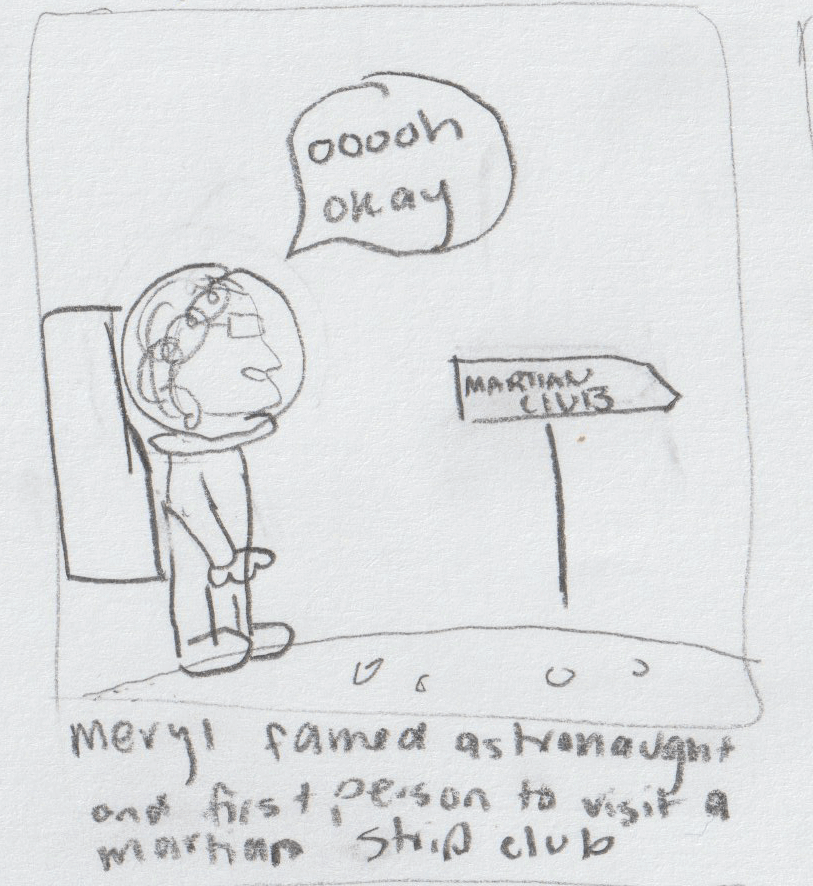 ooooh
okay
MARTIAN
CLUB
Meryl famed astronaught
and first person to visit a
martian strip club